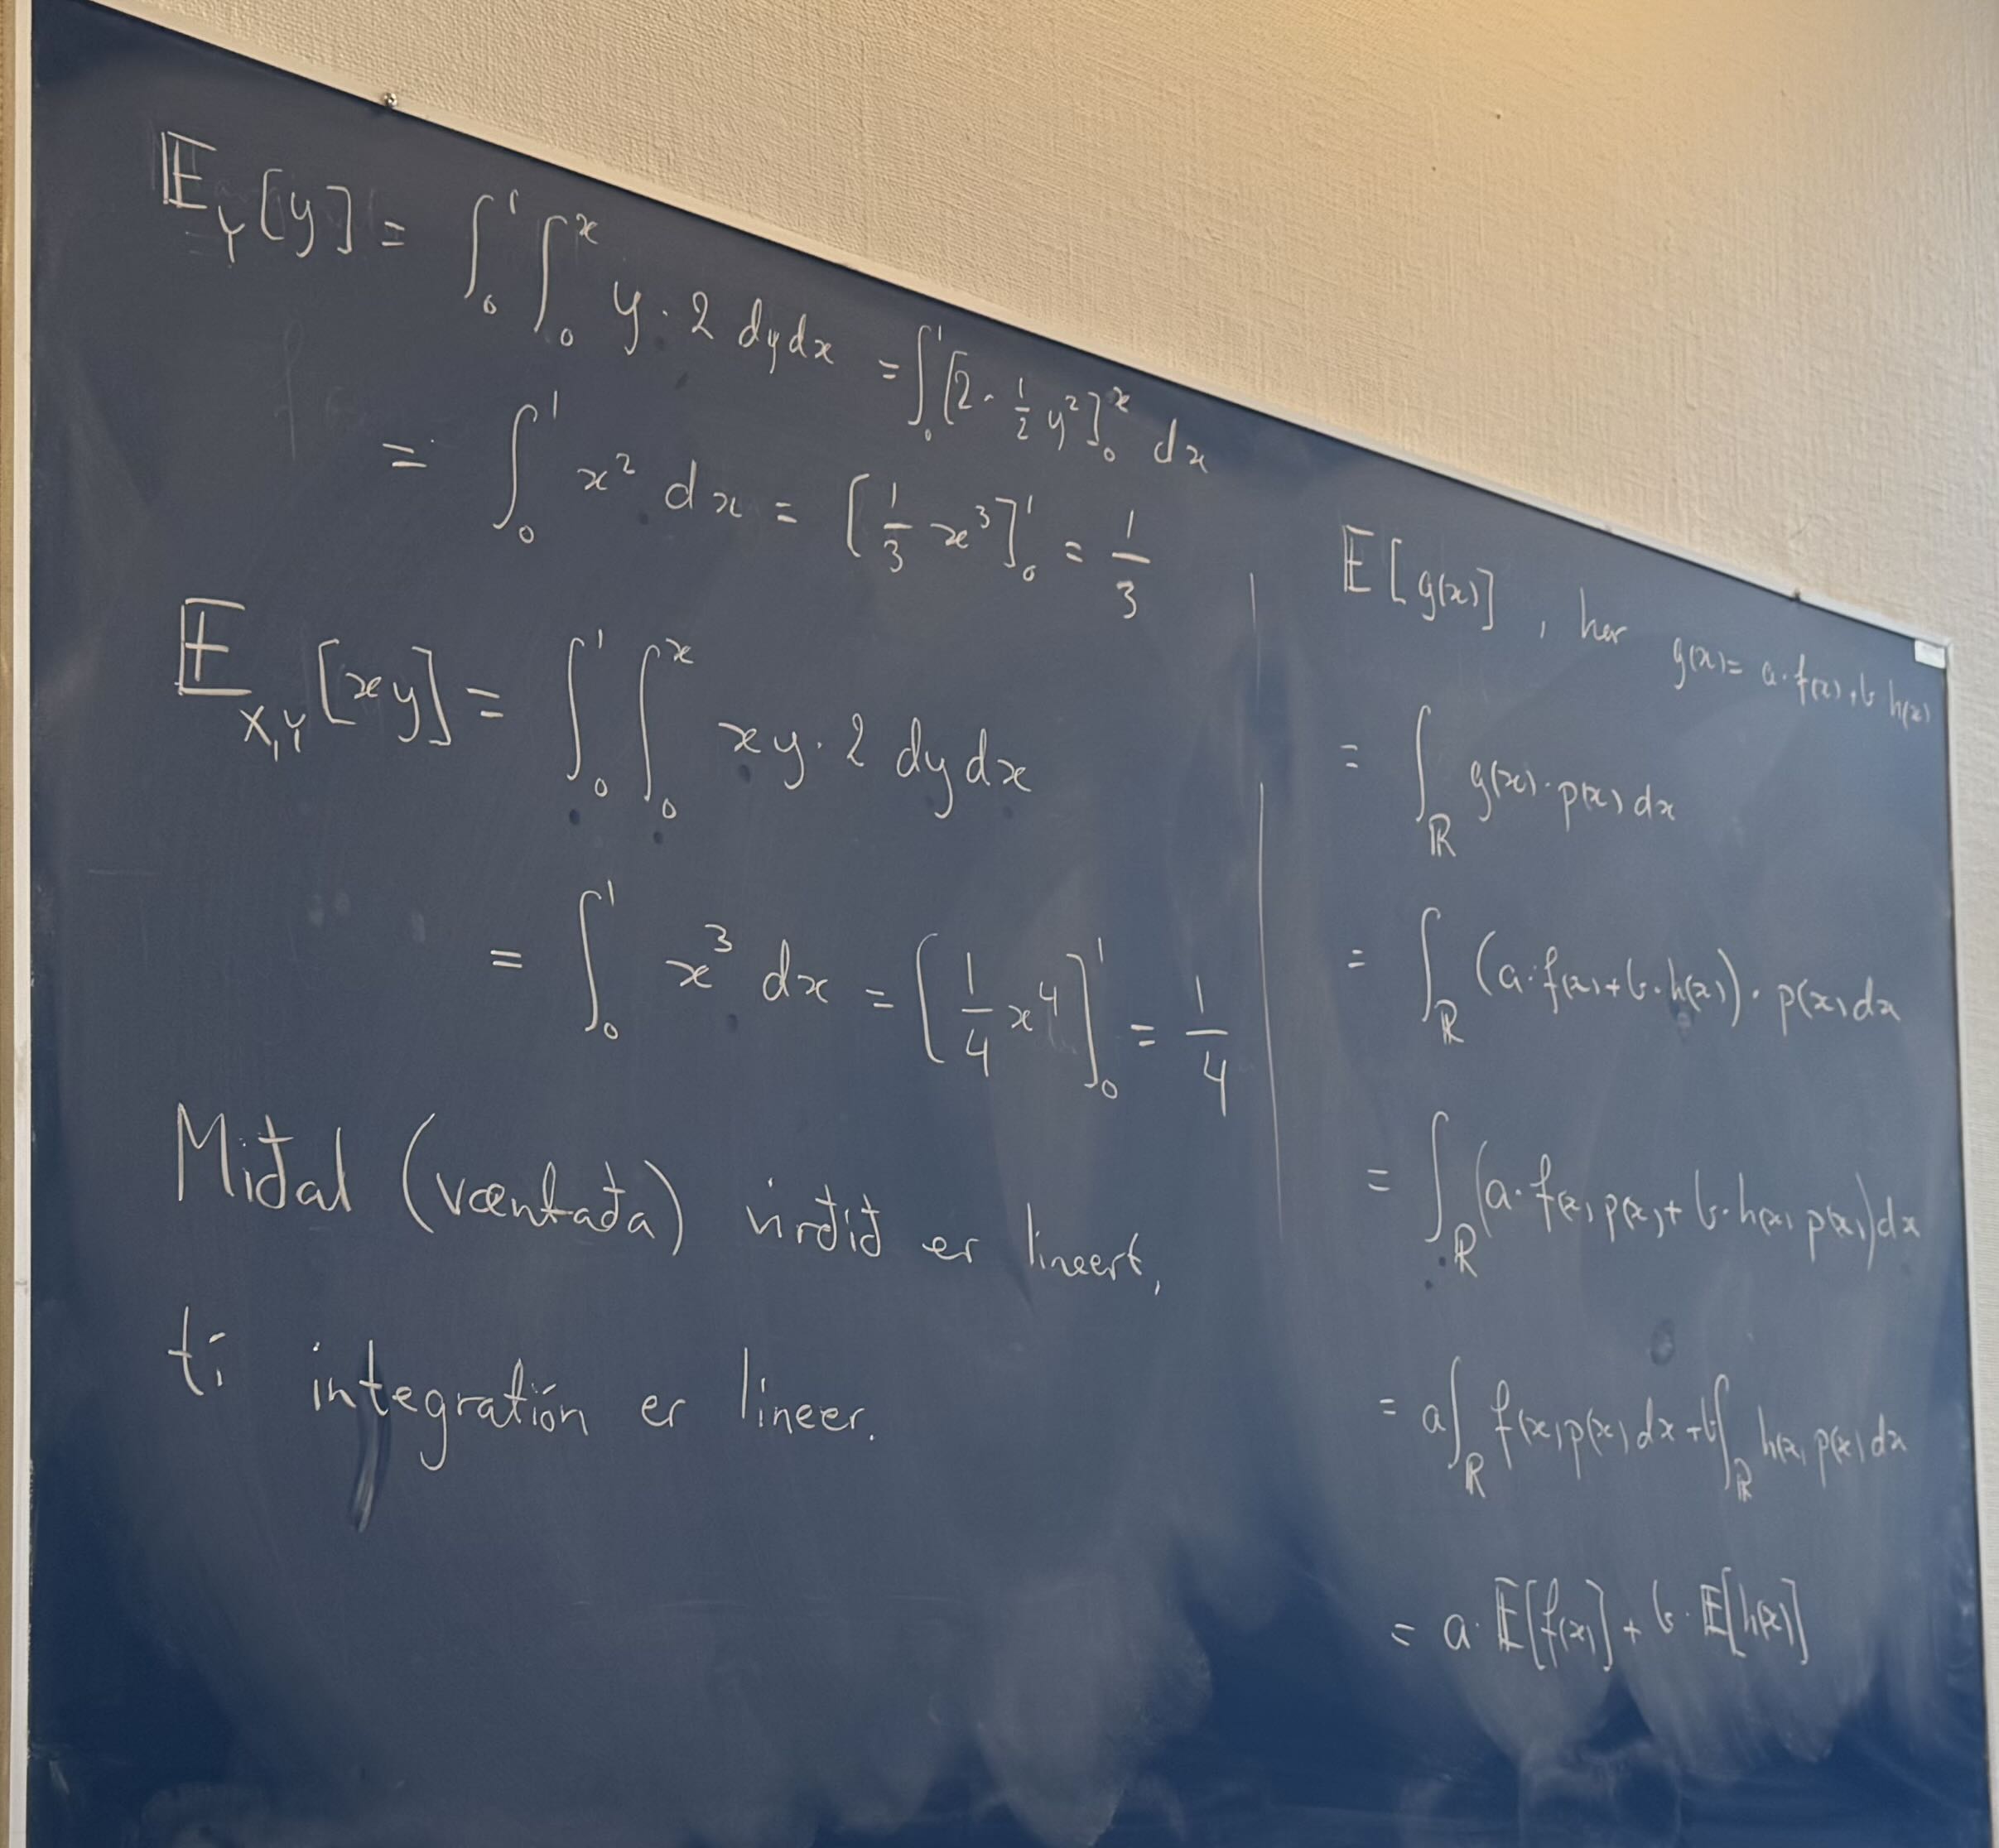 𝔼_Y[y] = ∫₀¹ ∫₀ˣ y · 2 dy dx = ∫₀¹ [2 · 1/2 y²]₀ˣ dx
= ∫₀¹ x² dx = [1/3 x³]₀¹ = 1/3
𝔼_{X,Y}[xy] = ∫₀¹ ∫₀ˣ xy · 2 dy dx
= ∫₀¹ x³ dx = [1/4 x⁴]₀¹ = 1/4
Miðal (væntaða) virðið er lineert,
tí integratión er lineer.
𝔼[g(x)], har g(x) = a · f(x) + b · h(x)
= ∫_ℝ g(x) · p(x) dx
= ∫_ℝ (a · f(x) + b · h(x)) · p(x) dx
= ∫_ℝ (a · f(x) p(x) + b · h(x) p(x)) dx
= a ∫_ℝ f(x) p(x) dx + b ∫_ℝ h(x) p(x) dx
= a · 𝔼[f(x)] + b · 𝔼[h(x)]